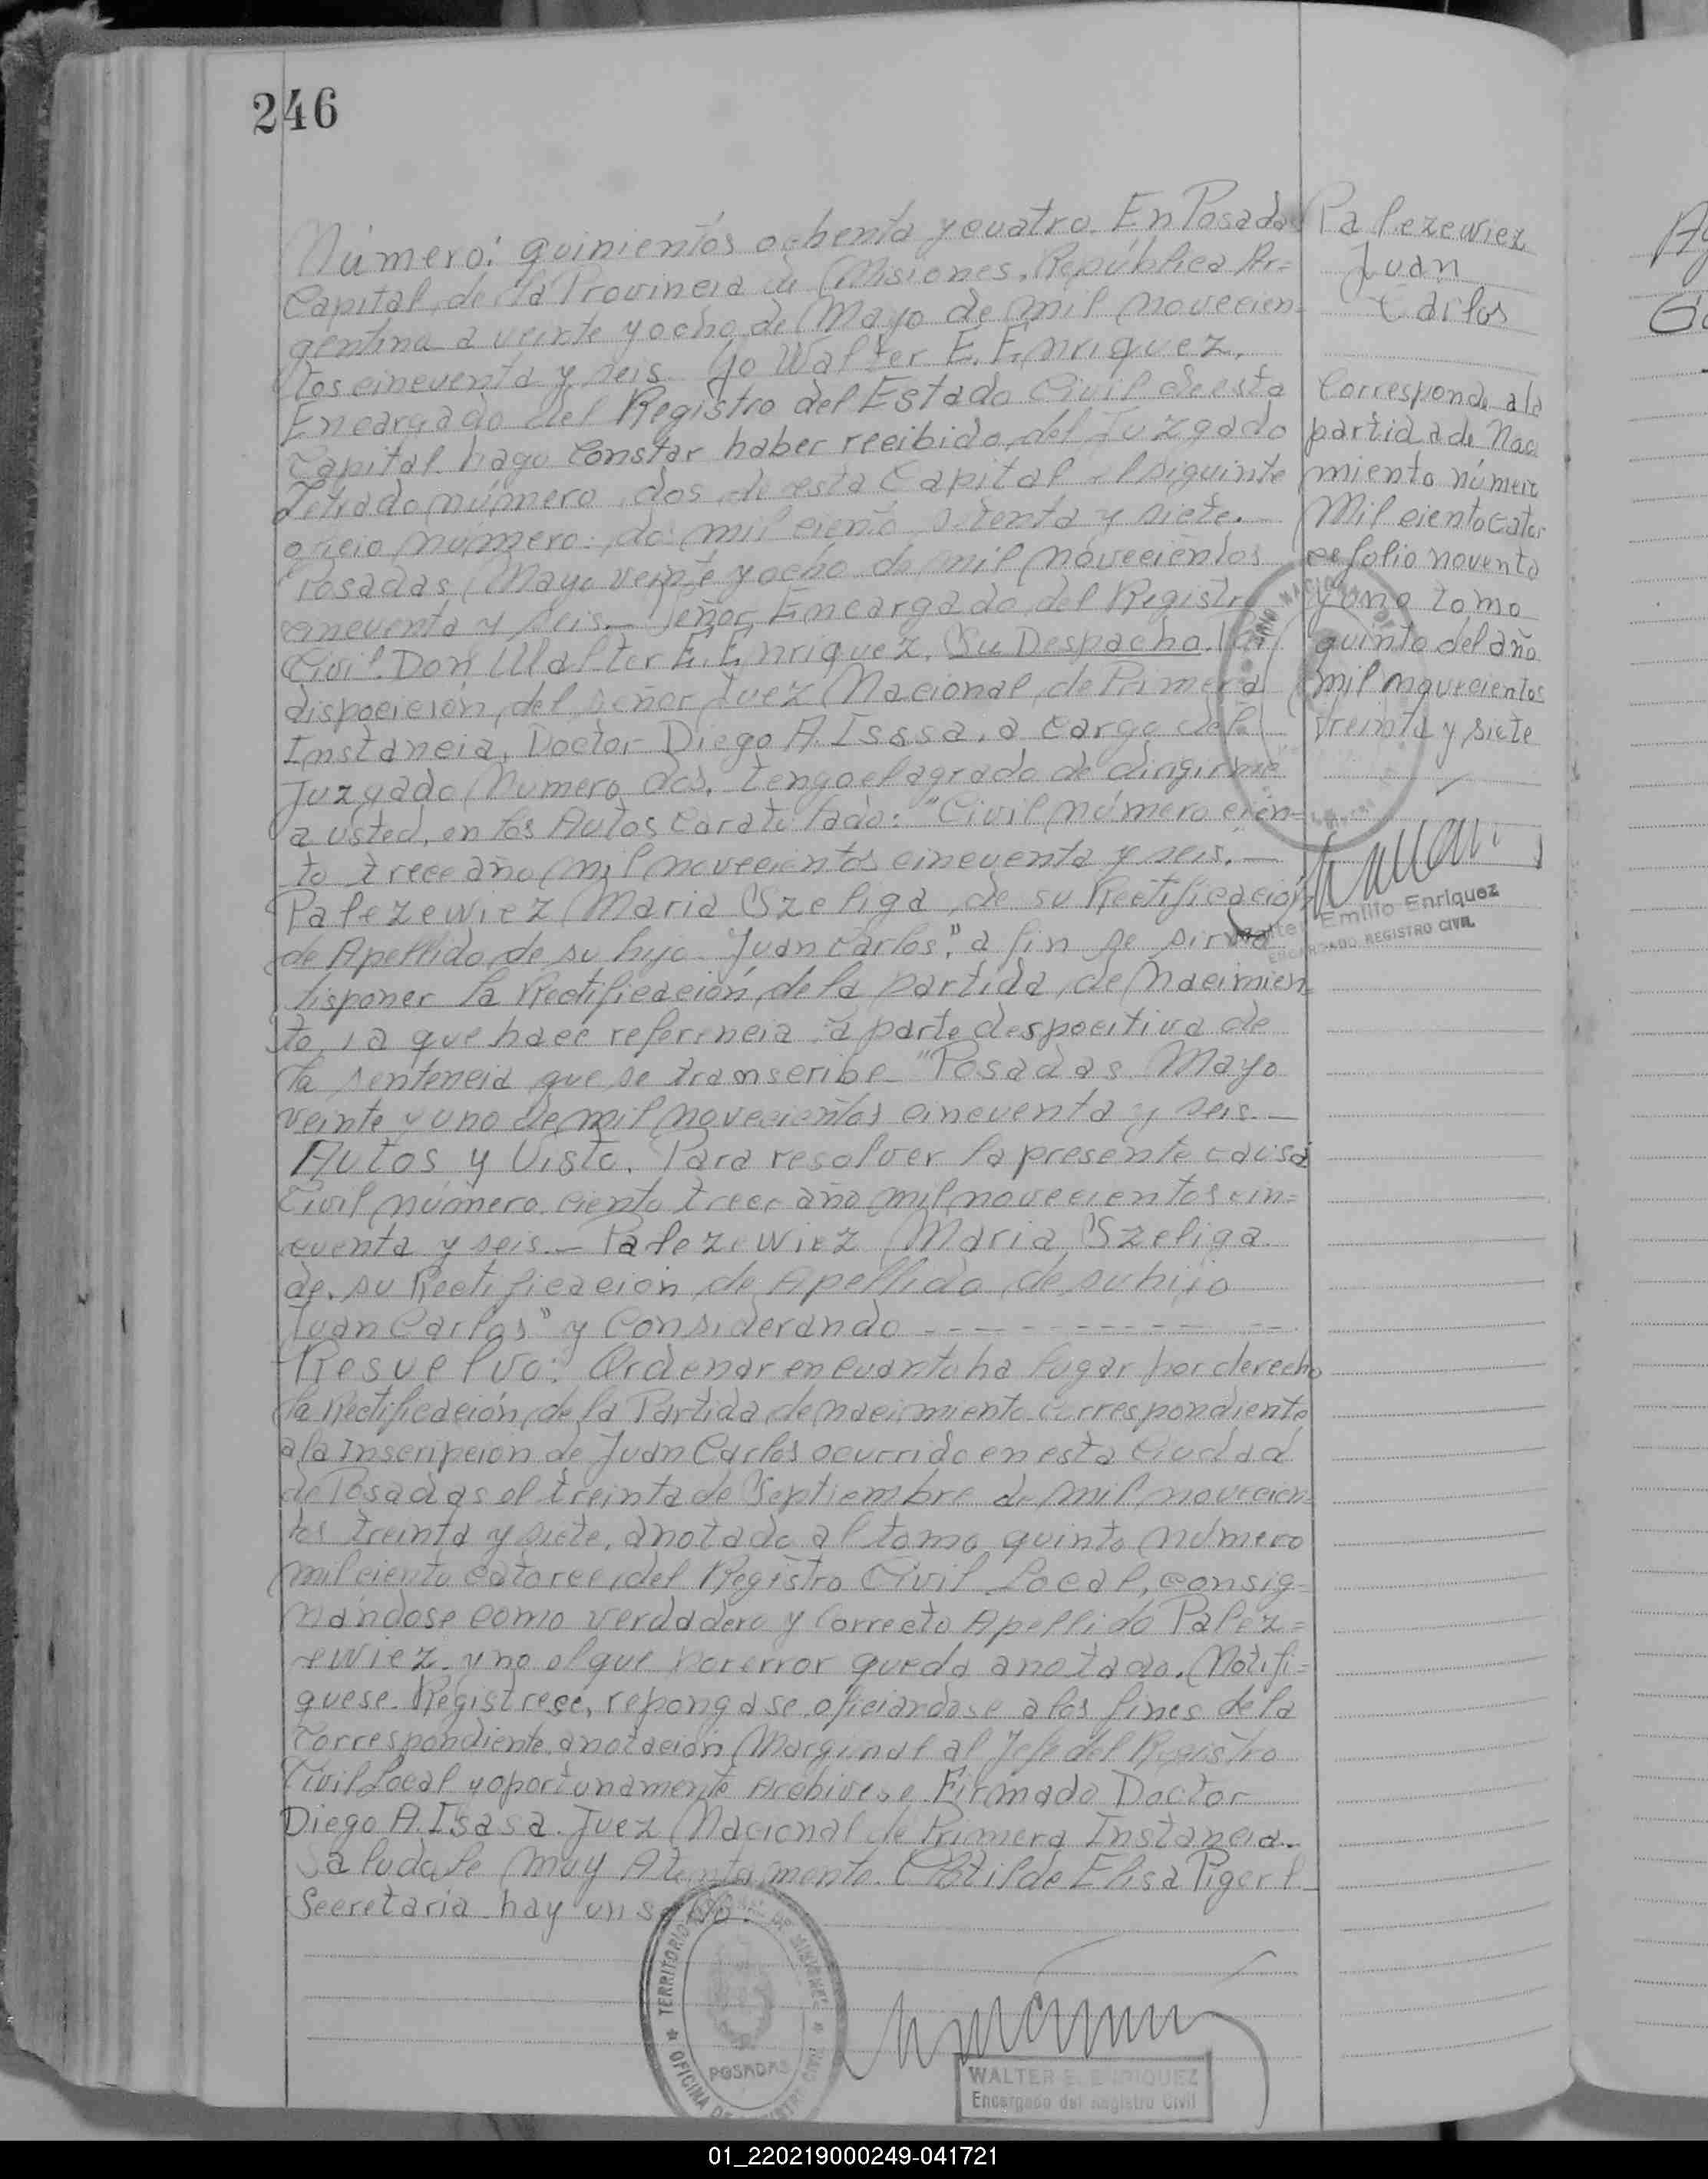 246
Número: quinientos ochenta y cuatro. En Posadas
Capital, de la Provincia de Misiones, República Ar=
gentina a veinte y ocho de Mayo de mil novecien=
tos cincuenta y seis. Yo Walter E. Enriquez,
Encargado del Registro del Estado Civil de esta
Capital hago Constar haber recibido del Juzgado
Letrado número dos de esta Capital el siguinte
oficio número: dos mil ciento setenta y siete.
Posadas, Mayo veinte y ocho de mil novecientos
cincuenta y seis.- Señor Encargado del Registro
Civil Don Walter E. Enriquez. Su Despacho.
disposición del señor Juez Nacional de Primera
Instancia, Doctor Diego A. Isssa, a cargo del
Juzgado Numero dos, tengo el agrado de dirigirme
a usted, en los Autos Caratulado: "Civil número cien=
to trece año mil novecientos cincuenta y seis.-
Palczewicz Maria Szeliga de su Rectificación
de Apellido de su hijo Juan Carlos", a fin se sirva
disponer la Rectificación de la partida de Nacimien=
to, la que hace referencia la parte despocitiva de
la sentencia que se transcribe "Posadas Mayo
veinte y uno de mil novecientos cincuenta y seis.-
Autos y Visto. Para resolver la presente causa
Civil número ciento trece año mil novecientos cin=
cuenta y seis.- Palczewicz Maria Szeliga
de. su Rectificacion de Apellido de su hijo
Juan Carlos" y Considerando - - - - - - - - - -
Resuelvo: Ordenar en cuanto ha lugar por derecho
la Rectificación de la Partida de nacimiento correspondiente
a la Inscripcion de Juan Carlos ocurrido en esta Ciudad
de Posadas el treinta de Septiembre de mil novecien=
tos treinta y siete, anotado al tomo quinto número
mil ciento catorce del Registro Civil Local, consig=
nándose como verdadero y Correcto Apellido Palcz=
ewicz y no el que por error queda anotado. Notifi=
quese. Registrese, repongase oficiandose a los fines de la
Correspondiente anotación Marginal al Jefe del Registro
Civil Local y oportunamente Archivese. Firmado Doctor
Diego A. Isasa. Juez Nacional de Primera Instancia.-
Saludale muy Atentamente. Clotilde Elisa Pigerl
Secretaria hay un sello.
Palczewicz
Juan
Carlos
Corresponde a la
partida de Naci
miento número
Mil ciento cator
ce folio noventa
y uno tomo
quinto del año
mil novecientos
treinta y siete
Walter Emilio Enriquez
ENCARGADO REGISTRO CIVIL
TERRITORIO NACIONAL DE MISIONES
POSADAS
OFICINA DE REGISTRO CIVIL
WALTER E. ENRIQUEZ
Encargado del Registro Civil
01_220219000249-041721